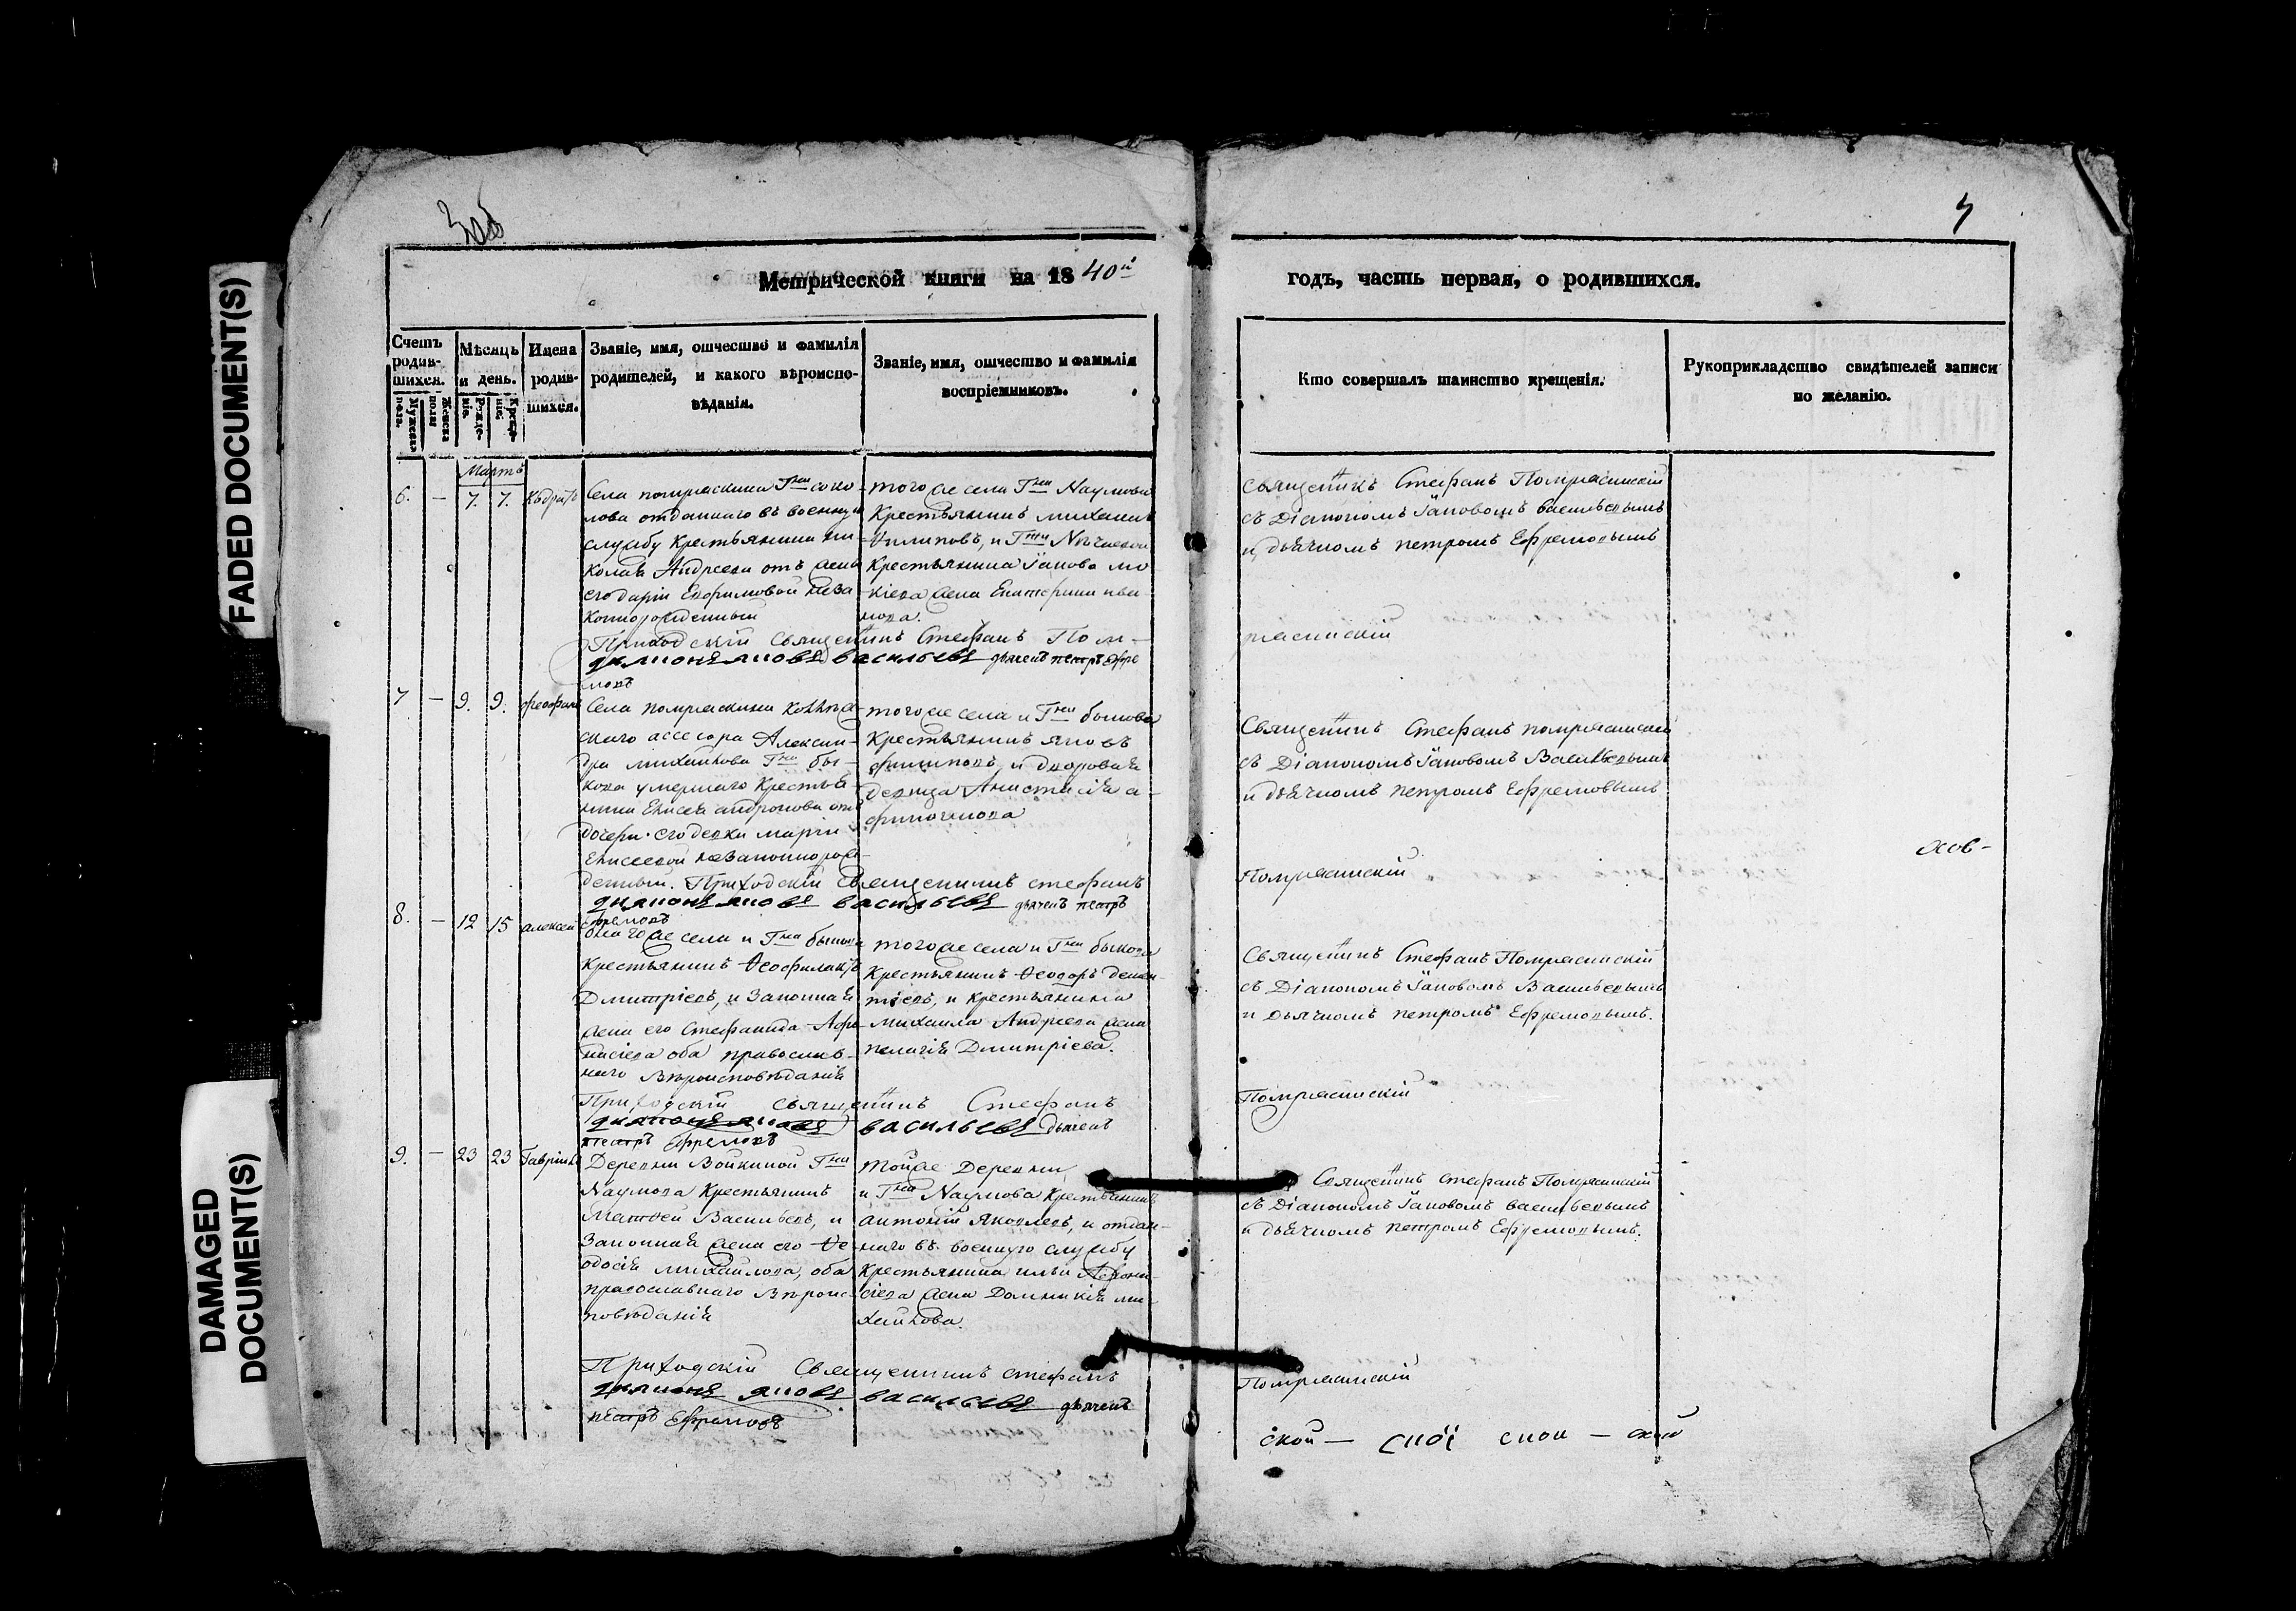 FADED DOCUMENT(S)
DAMAGED
DOCUMENT(S)
Зоб
4
Метрической книги на 1840й
годъ, часть первая, о родившихся.
Счетъ родив-шихся.
Мужеска пола.
Женска пола
Мѣсяцъ и день.
Рожде-нія.
Креще-нія.
Имена родив-шихся.
Званіе, имя, отчество и фамилія
родителей, и какого вѣроиспо-
вѣданія.
Званіе, имя, отчество и фамилія
воспріемниковъ.
Кто совершалъ таинство крещенія.
Рукоприкладство свидѣтелей записи
по желанію.
Мартъ
6. — 7. 7. Кѡдратъ
Села помряскина Гна соко-
лова отданнаго въ военную
службу Крестьянина ни-
колая Андреева отъ жены
его дарьи Евфимовой неза
коннорожденный
тогоже села Гна Наумова
Крестьянинъ михаилъ
Ѳилиповъ, и Гна
Крестьянина Іакова мо
кіева жена Екатерина ива
нова.
Священникъ Стефанъ Помряскинскій
съ Діакономъ Іаковомъ васильевымъ
и дьячкомъ петромъ Ефремовымъ
Приходскій Священникъ Стефанъ Пом-
ряскинскій
диаконъ яковъ васильевъ дьячекъ петръ ефре
мовъ
7 — 9. 9. феофанъ
Села помряскина коллеж-
скаго ассесора Алексан-
дра михайлова Гна бы-
кова умершаго Крестья-
нина Елисея андронова отъ
дочери его девки марьи
Елисеевой незаконнорож-
денный.
тогоже села и Гна быкова
Крестьянинъ яковъ
филиповъ, и дворовая
девица Анистасія а-
финогинова
Священникъ Стефанъ помряскинскій
съ Діакономъ Іаковомъ Васильевымъ
и дьячкомъ петромъ Ефремовымъ
Приходскій священникъ стефанъ
Помряскинскій
диаконъ яковъ васильевъ дьячекъ петръ
ефремовъ
8. — 12 15 алексей
онагоже села и Гна быкова
Крестьянинъ Ѳеофилактъ
Дмитріевъ, и Законная
жена его Стефанида Афа-
насіева оба православ-
наго Вѣроисповѣданія
тогоже села и Гна быкова
Крестьянинъ Ѳеодоръ демен-
тіевъ, и крестьянина
михаила Андреева жена
пелагія Дмитріева.
Священникъ Стефанъ Помряскинскій
съ Діакономъ Іаковомъ Васильевымъ
и Дьячкомъ петромъ Ефремовымъ.
Приходскій священникъ Стефанъ
Помряскинскій
диаконъ яковъ васильевъ дьячекъ
петръ Ефремовъ
9. — 23 23 Гавріилъ
Деревни Войкиной Гна
Наумова Крестьянинъ
Матѳей Васильевъ, и
Законная жена его Ѳе-
одосія михайлова, оба
православнаго Вѣроис-
повѣданія
тойже Деревни
и Гна Наумова Крестьянинъ
антоній Яковлевъ, и отдан-
наго въ военную службу
Крестьянина ильи Афона-
сіева жена Домникія ми-
хайлова.
Священникъ стефанъ Помряскинскій
съ Діакономъ Іаковомъ васильевымъ
и дьячкомъ петромъ Ефремовымъ.
Приходскій Священникъ стефанъ
Помряскинскій
диаконъ яковъ васильевъ дьячекъ
петръ Ефремовъ